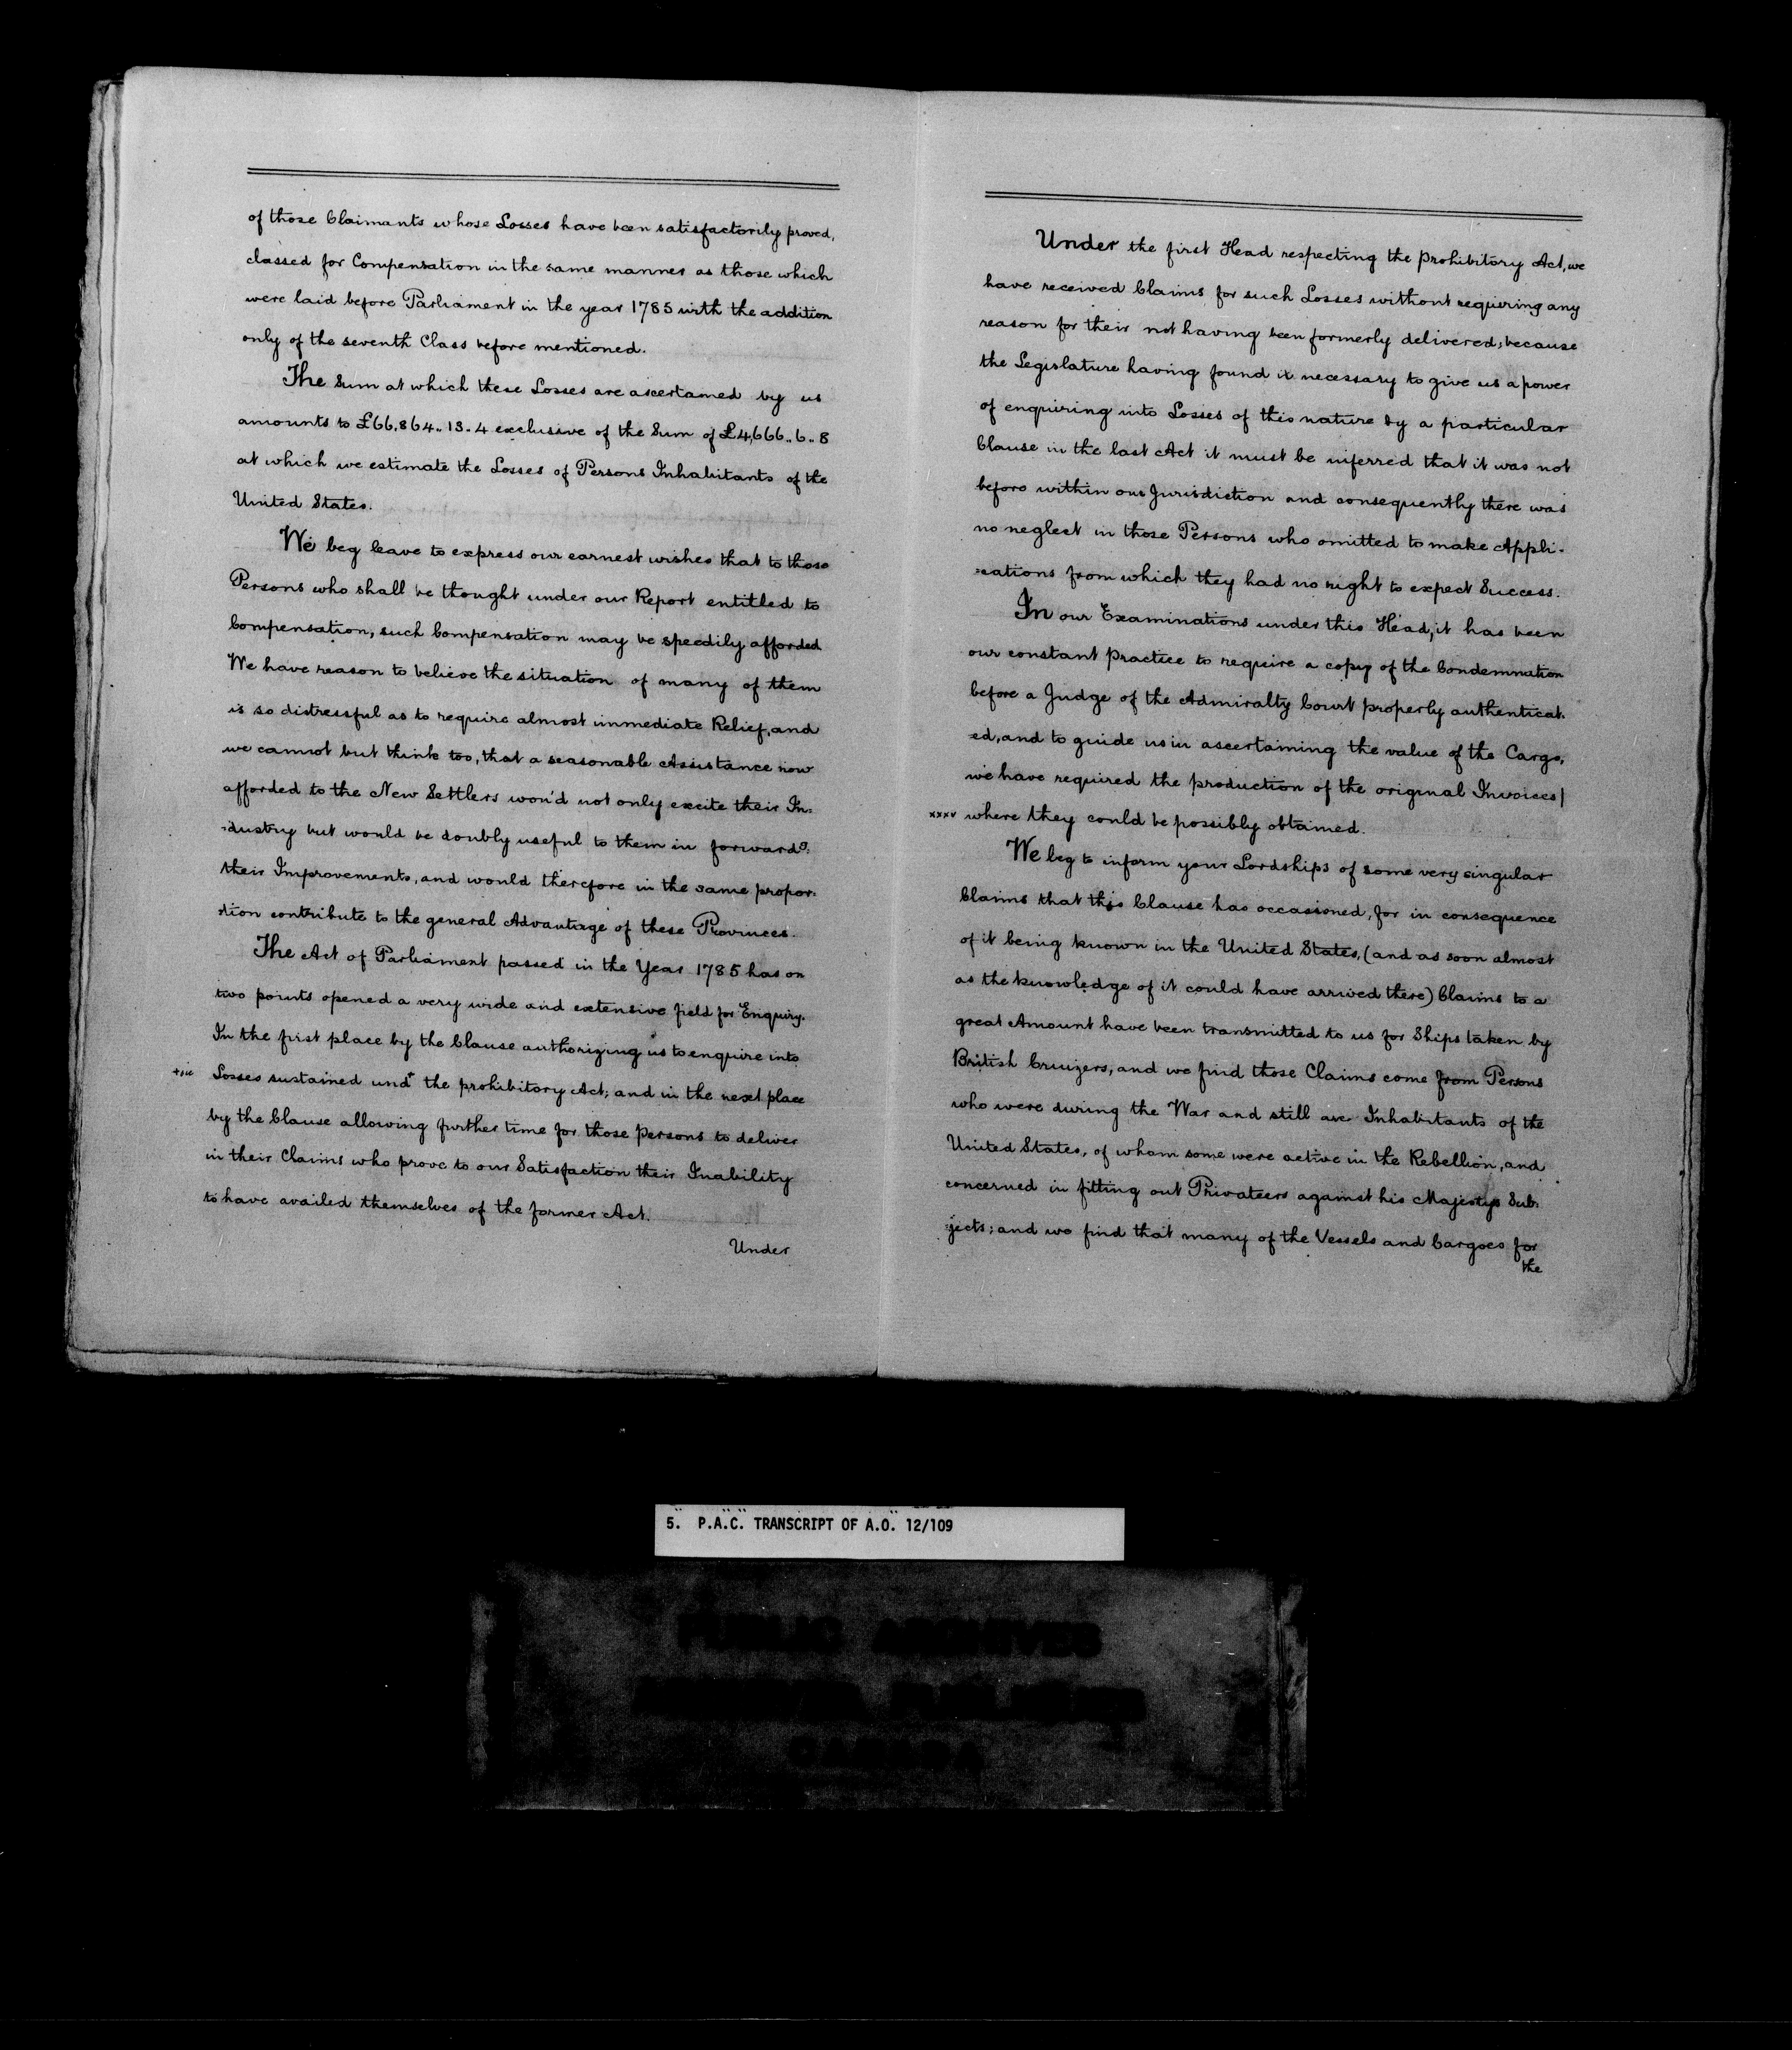 of those Claimants whose Losses have been satisfactorily proved,
classed for Compensation in the same manner as those which
were laid before Parliament in the year 1785 with the addition
only of the seventh Class before mentioned.
The Sum at which these Losses are ascertained by us
amounts to £66,864..13..4 exclusive of the Sum of £4,666..6..8
at which we estimate the Losses of Persons Inhabitants of the
United States.
We beg leave to express our earnest wishes that to those
Persons who shall be thought under our Report entitled to
Compensation, such Compensation may be speedily afforded
We have reason to believe the situation of many of them
is so distressful as to require almost immediate Relief, and
we cannot but think too, that a seasonable Assistance now
afforded to the New Settlers wou'd not only excite their In:
:dustry but would be doubly useful to them in forwardg:
their Improvements, and would therefore in the same propor:
:tion contribute to the general Advantage of these Provinces.
The Act of Parliament passed in the Year 1785 has on
two points opened a very wide and extensive field for Enquiry.
In the first place by the Clause authorizing us to enquire into
Losses sustained undr the prohibitory Act; and in the next place
by the Clause allowing further time for those Persons to deliver
in their Claims who prove to our Satisfaction their Inability
to have availed themselves of the former Act.
Under
Under the first Head respecting the Prohibitory Act, we
have received Claims for such Losses without requiring any
reason for their not having been formerly delivered; because
the Legislature having found it necessary to give us a power
of enquiring into Losses of this nature by a particular
Clause in the last Act it must be inferred that it was not
before within our Jurisdiction and consequently there was
no neglect in those Persons who omitted to make Appli-
:cations from which they had no right to expect Success.
In our Examinations under this Head, it has been
our constant Practice to require a copy of the Condemnation
before a Judge of the Admiralty Court properly authenticat:
:ed, and to guide us in ascertaining the value of the Cargo,
we have required the production of the original Invoices /
xxxv where they could be possibly obtained.
We beg to inform your Lordships of some very singular
Claims that this Clause has occasioned, for in consequence
of it being known in the United States, (and as soon almost
as the knowledge of it could have arrived there) Claims to a
great Amount have been transmitted to us for Ships taken by
British Cruizers, and we find those Claims come from Persons
who were during the War and still are Inhabitants of the
United States, of whom some were active in the Rebellion, and
concerned in fitting out Privateers against his Majestys Sub:
:jects; and we find that many of the Vessels and Cargoes for
the
5. P.A.C. TRANSCRIPT OF A.O. 12/109
PUBLIC ARCHIVES
CANADA